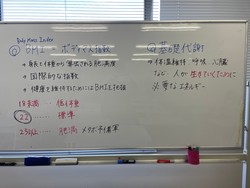 Body Mass Index
① BMI = ボディマス指数
→ 身長と体重から算出される肥満度
→ 国際的な指数
→ 健康を維持するためにはBMIを
18未満 低体重
22 標準
25以上 肥満 メタボ予備軍
② 基礎代謝
体温維持、呼吸、心臓
など、人が生きていくために
必要なエネルギー